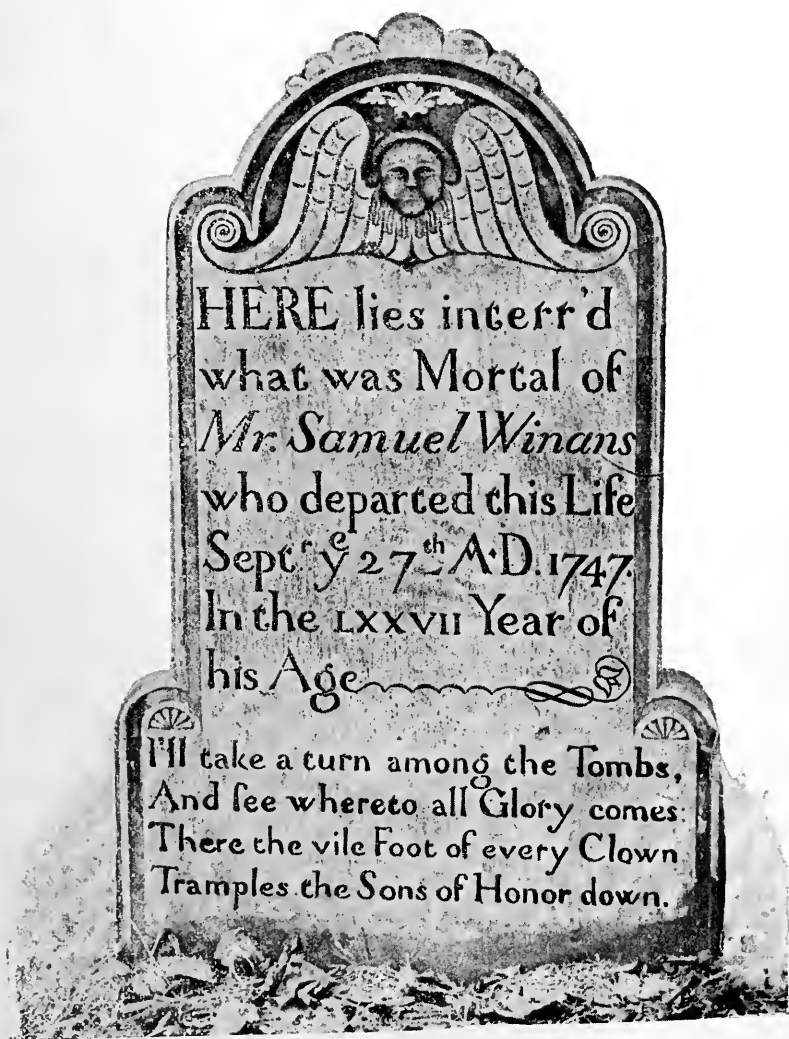 HERE lies interr'd
what was Mortal of
Mr. Samuel Winans
who departed this Life
Septr ye 27th A·D. 1747.
In the LXXVII Year of
his Age
I'll take a turn among the Tombs,
And ſee whereto all Glory comes:
There the vile Foot of every Clown
Tramples the Sons of Honor down.